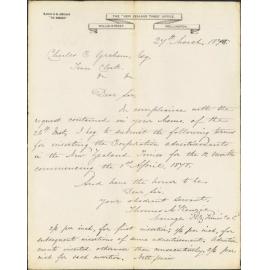 THE "NEW ZEALAND TIMES" OFFICE,
WILLIS-STREET WELLINGTON
27th March, 1878.
Charles C. Graham, Esq
Town Clerk
Dear Sir,
In compliance with the
request contained in your Memo. of the
26th Inst, I beg to submit the following terms
for inserting the Corporation advertisements
in the New Zealand Times for the 12 months
commencing the 1st April, 1878.
And have the honor to be
Dear Sir,
Your obedient servant,
Thomas McKenzie
Manager
3/- per inch, for first insertion; per inch, for
subsequent insertions of same advertisements. Advertise-
ments inserted otherwise than consecutively, 3/- per
inch for each insertion. Nett price